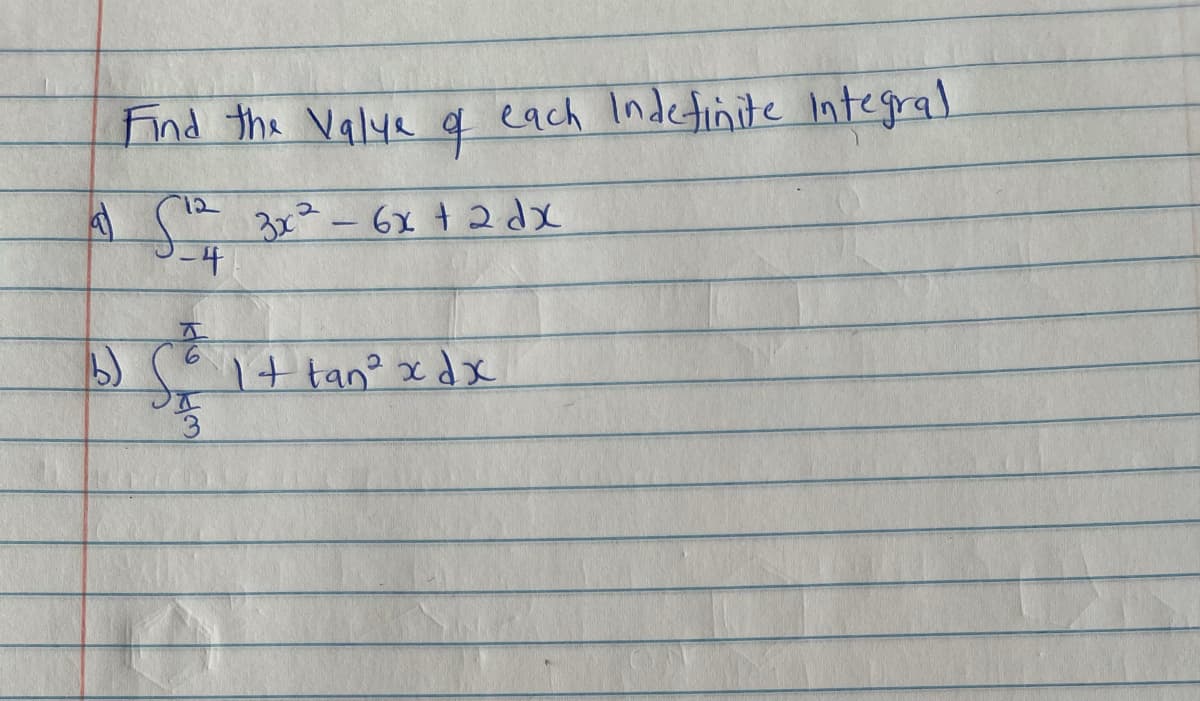 Find the Value of each Indefinite Integral
a) ∫_{-4}^{12} 3x² - 6x + 2 dx
b) ∫_{π/3}^{π/6} 1 + tan² x dx